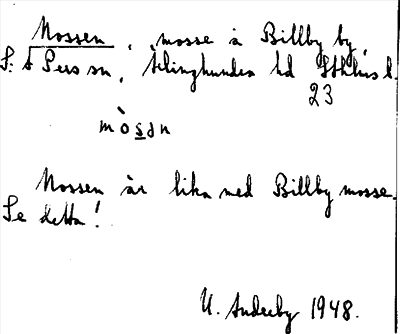 Mossen, mosse å Billby by,
S:t Pers sn, Ärlinghundra hd Sthlms l.
23
mòsən
Mossen är lika med Billby mosse.
Se detta!
U. 1948.